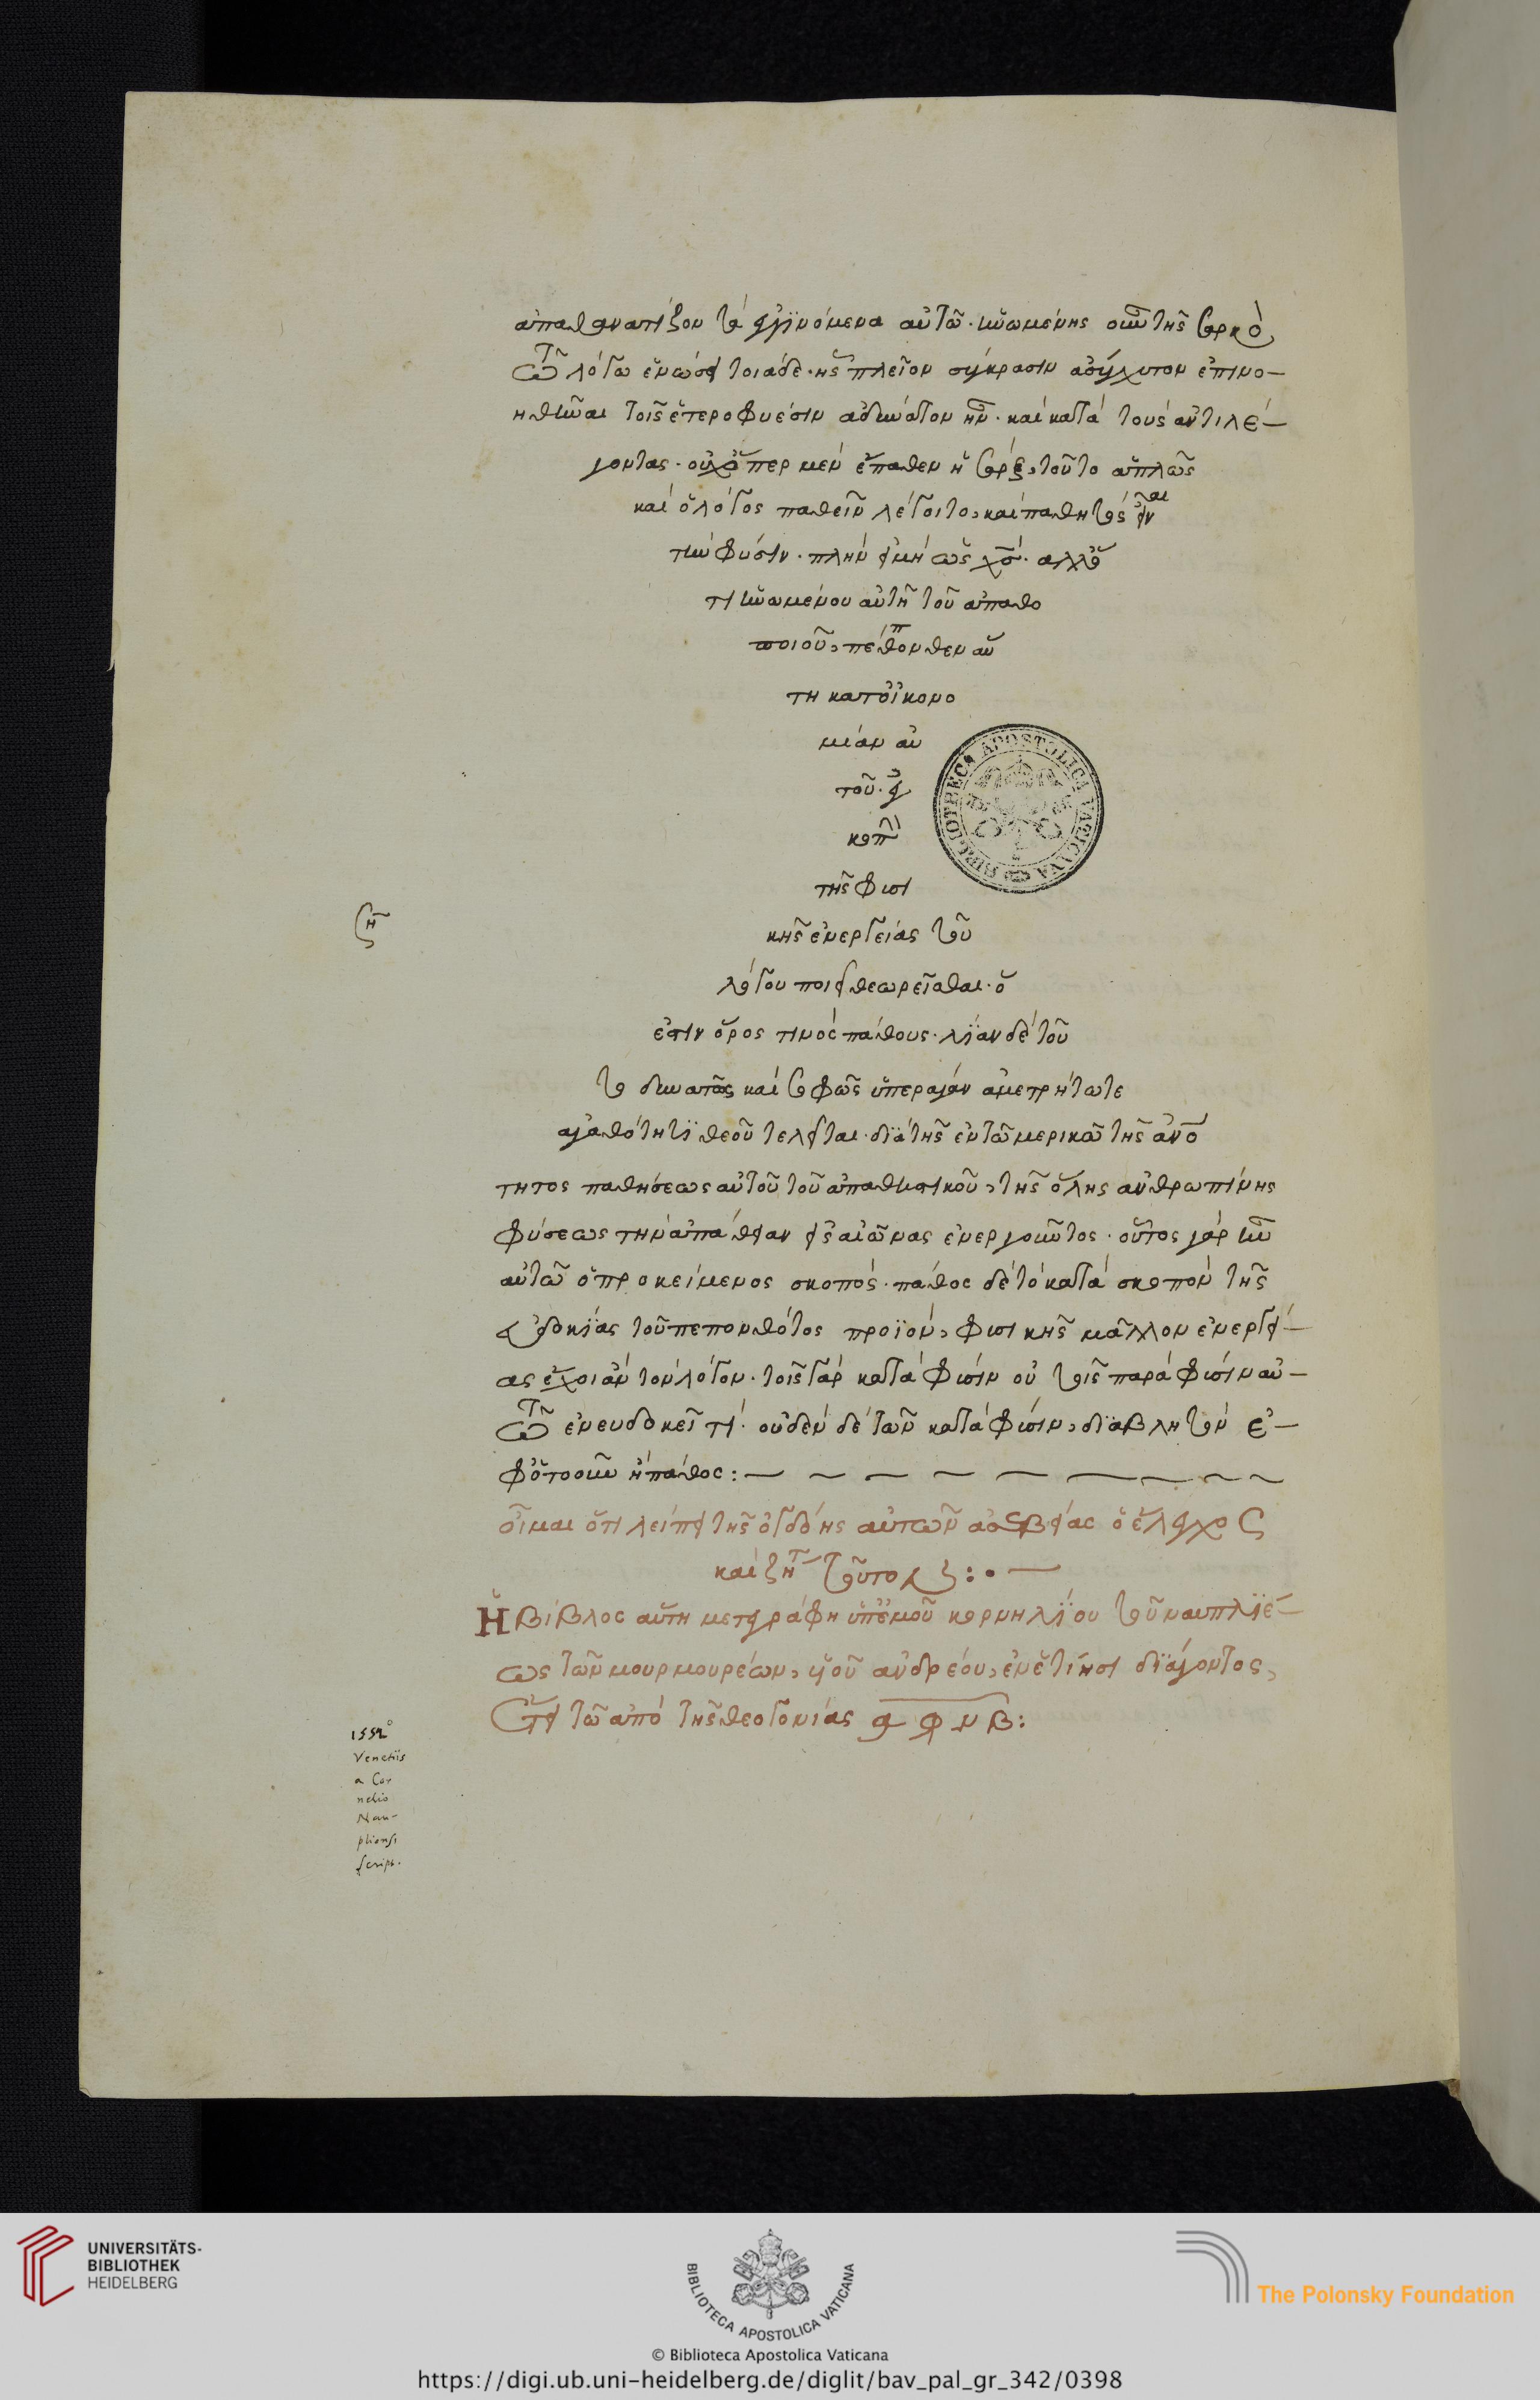 ἀπαθανατίζον τὰ γινόμενα αὐτῶ. ἡνωμένης οὖν τῆς σαρκὸς
τῶ λόγω ἑνώσει τοιάδε. ἧς πλεῖον σύγκρασιν ἀσύγχυτον ἐπινο-
ηθῆναι τοῖς ἑτεροφυέσιν ἀδύνατον ἦν. καὶ κατὰ τοὺς ἀντιλέ-
γοντας. οὐχ ὅπερ μὲν ἔπαθεν ἡ σὰρξ, τοῦτο ἁπλῶς
καὶ ὁ λόγος παθεῖν λέγοιτο, καὶ παθητὸς εἶναι
τὴν φύσιν. πλὴν εἰ μὴ ὡς χσ. ἀλλ' ὅ
τι ἡνωμένου αὐτῆ τοῦ ἀπαθο
ποιοῦ, πέπονθεν αὕ
τη κατ' οἰκονο
μίαν αὐ
τοῦ.
τῆς φυσι
κῆς ἐνεργείας τοῦ
λόγου ποιεῖ θεωρεῖσθαι. ὅ
ἐστιν ὅρος τινὸς πάθους. λίαν δὲ τοῦ
το δυνατῶς καὶ σοφῶς ὑπεράγαν ἀμετρήτω τε
ἀγαθότητι θεοῦ τελεῖται. διὰ τῆς ἐν τῶ μερικῶ τῆς ἀνο
τητος παθήσεως αὐτοῦ τοῦ ἀπαθιστικοῦ, τῆς ὅλης ἀνθρωπίνης
φύσεως τὴν ἀπάθειαν εἰς αἰῶνας ἐνεργοῦντος. οὗτος γὰρ ἦν
αὐτῶ ὁ προκείμενος σκοπός. πάθος δὲ τὸ κατὰ σκοπὸν τῆς
εὐδοκίας τοῦ πεπονθότος προϊὸν, φυσικῆς μᾶλλον ἐνεργεί-
ας ἔχοι ἂν τὸν λόγον. τοῖς γὰρ κατὰ φύσιν οὐ τοῖς παρὰ φύσιν αὐ-
τῶ ἐνευδοκεῖ τί. οὐδὲν δὲ τῶν κατὰ φύσιν, διαβλητὸν ἐ-
φ' ὅτοοῦν ἢ πάθος:
οἶμαι ὅτι λείπει τῆς ὀγδόης αὐτῶν ἀσεβείας ὁ ἔλεγχος
καὶ ζητ
Ἡ βίβλος αὕτη μετεγράφη ὑπ' ἐμοῦ κορνηλίου τοῦ ναυπλιέ-
ως τῶν μουρμουρέων, υἱοῦ ἀνδρέου, ἐν ἑνετίησι διάγοντος,
ἔτει τῶ ἀπὸ τῆς θεογονίας α φ ν β:
1552
Venetiis
a Cor
nelio
Nau-
pliensi
script.
BIBLIOTHECA APOSTOLICA VATICANA
UNIVERSITÄTS-
BIBLIOTHEK
HEIDELBERG
BIBLIOTECA APOSTOLICA VATICANA
The Polonsky Foundation
© Biblioteca Apostolica Vaticana
https://digi.ub.uni-heidelberg.de/diglit/bav_pal_gr_342/0398